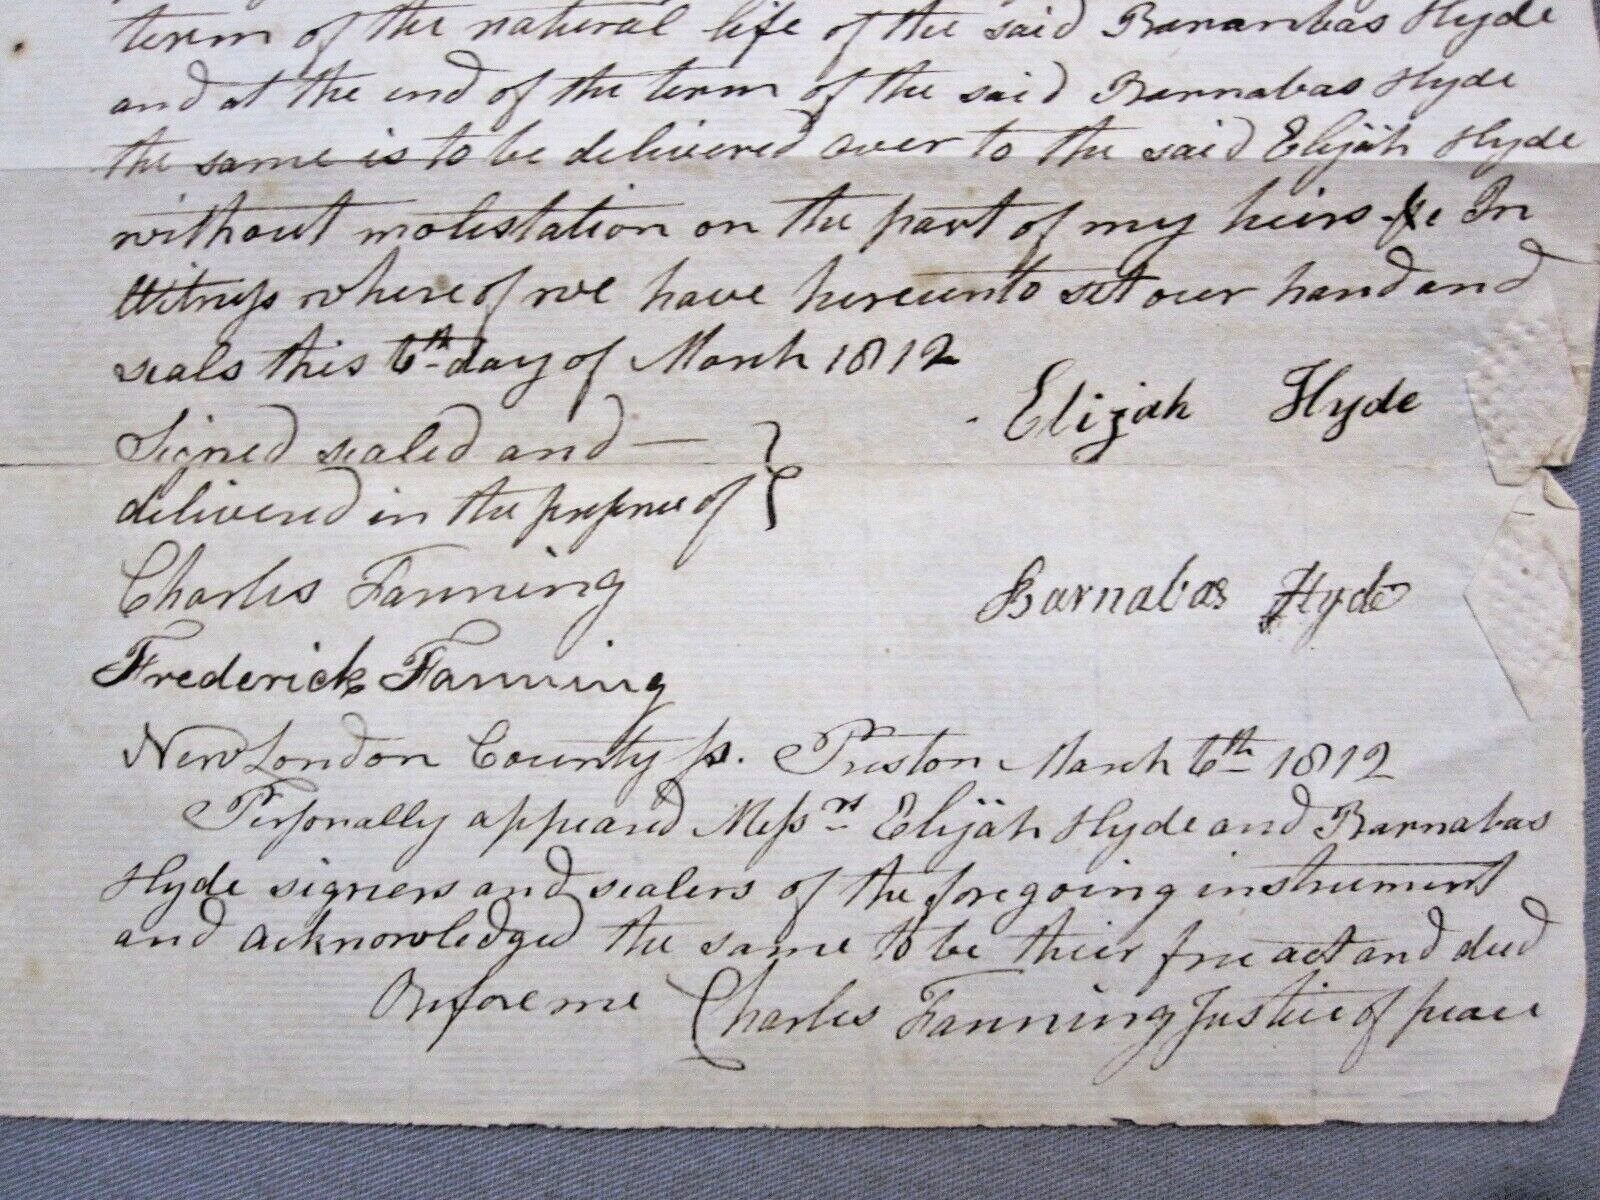 term of the natural life of the said Barnarbas Hyde
and at the end of the term of the said Barnabas Hyde
the same is to be delivered over to the said Elijah Hyde
without molestation on the part of my heirs &c In
Witness where of we have hereunto set our hand and
seals this 6th day of March 1812
Elijah Hyde
Sined sealed and —
delivered in the presence of
Charles Fanning
Barnabas Hyde
Frederick Fanning
New London County ss. Preston March 6th 1812
Personally appeared Messrs Elijah Hyde and Barnabas
Hyde signers and sealers of the foregoing instrument
and acknowledged the same to be their free act and deed
Before me Charles Fanning Justice of peace